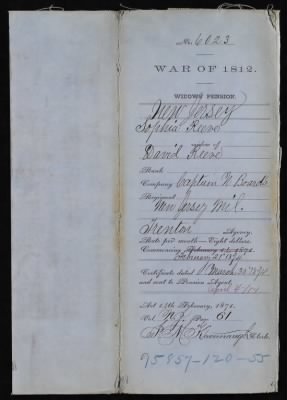 No. 6023
WAR OF 1812.
WIDOWS' PENSION.
New Jersey
Sophia Reeve
widow of
David Reeve
Rank
Company Captain N Boards
Regiment
New Jersey Mil.
Trenton Agency.
Rate per month—Eight dollars.
Commencing February 14, 1871.
Certificate dated March
and sent to Pension Agent,
Act 14th February, 1871.
Vol. Page 61
Clerk.
95857-120-55